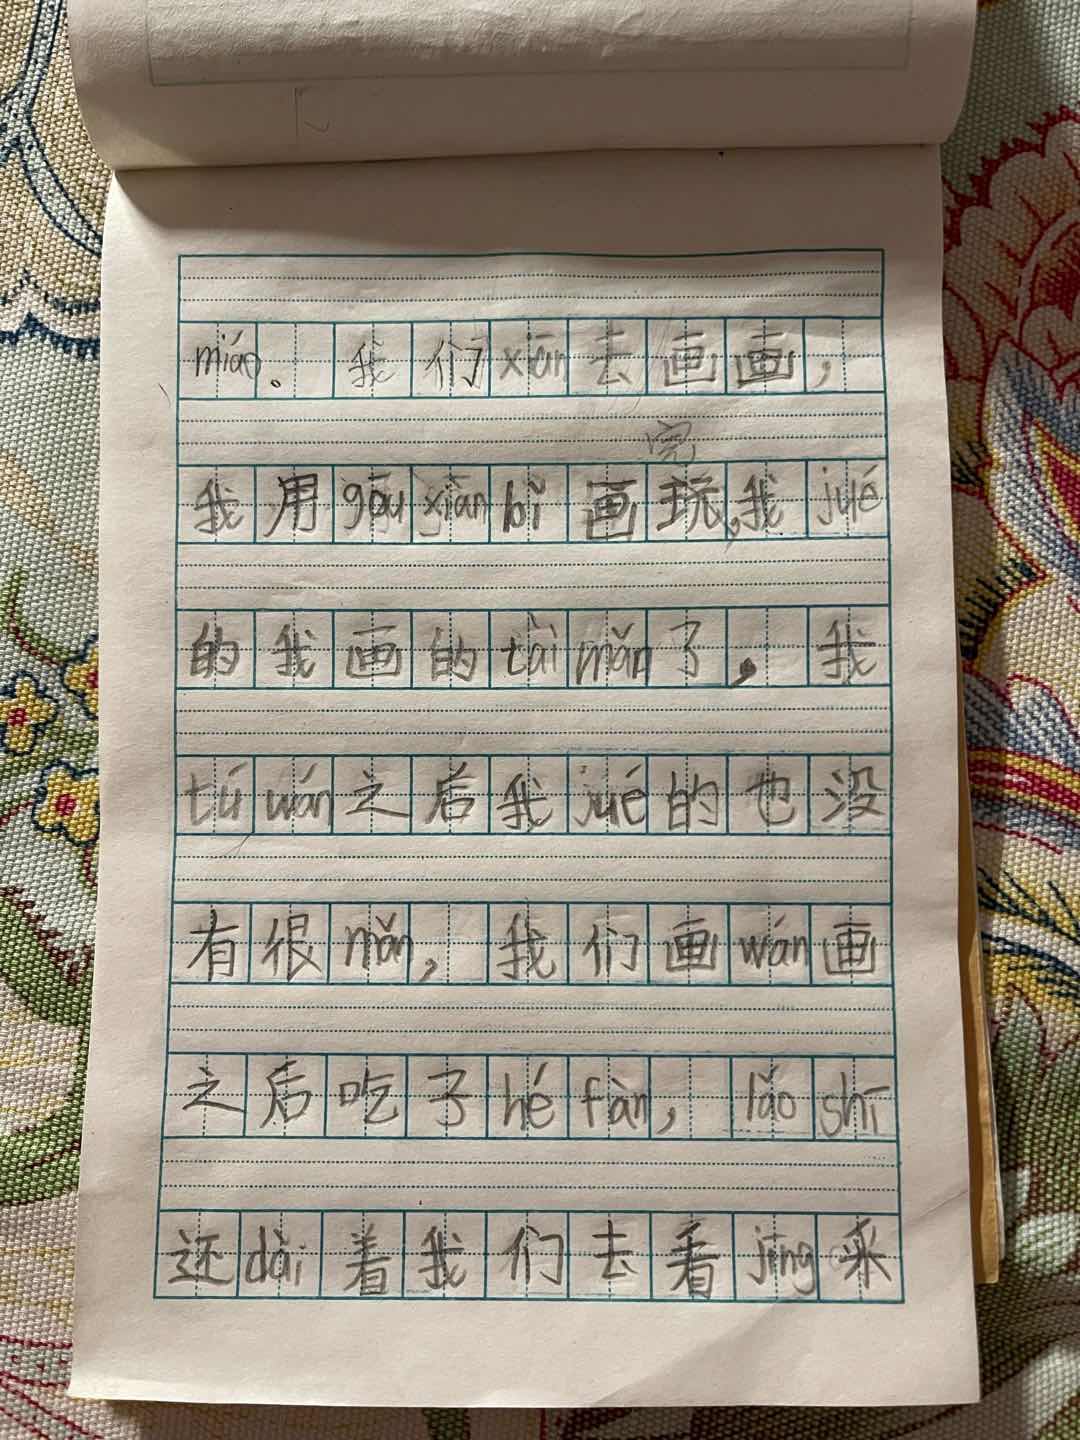 miáo。我们xiān去画画，
完
我用gōuxiànbǐ画玩，我jué
的我画的tàimǎn了，我
túwán之后我jué的也没
有很mǎn，我们画wán画
之后吃了héfàn，lǎoshī
还dài着我们去看jīng采